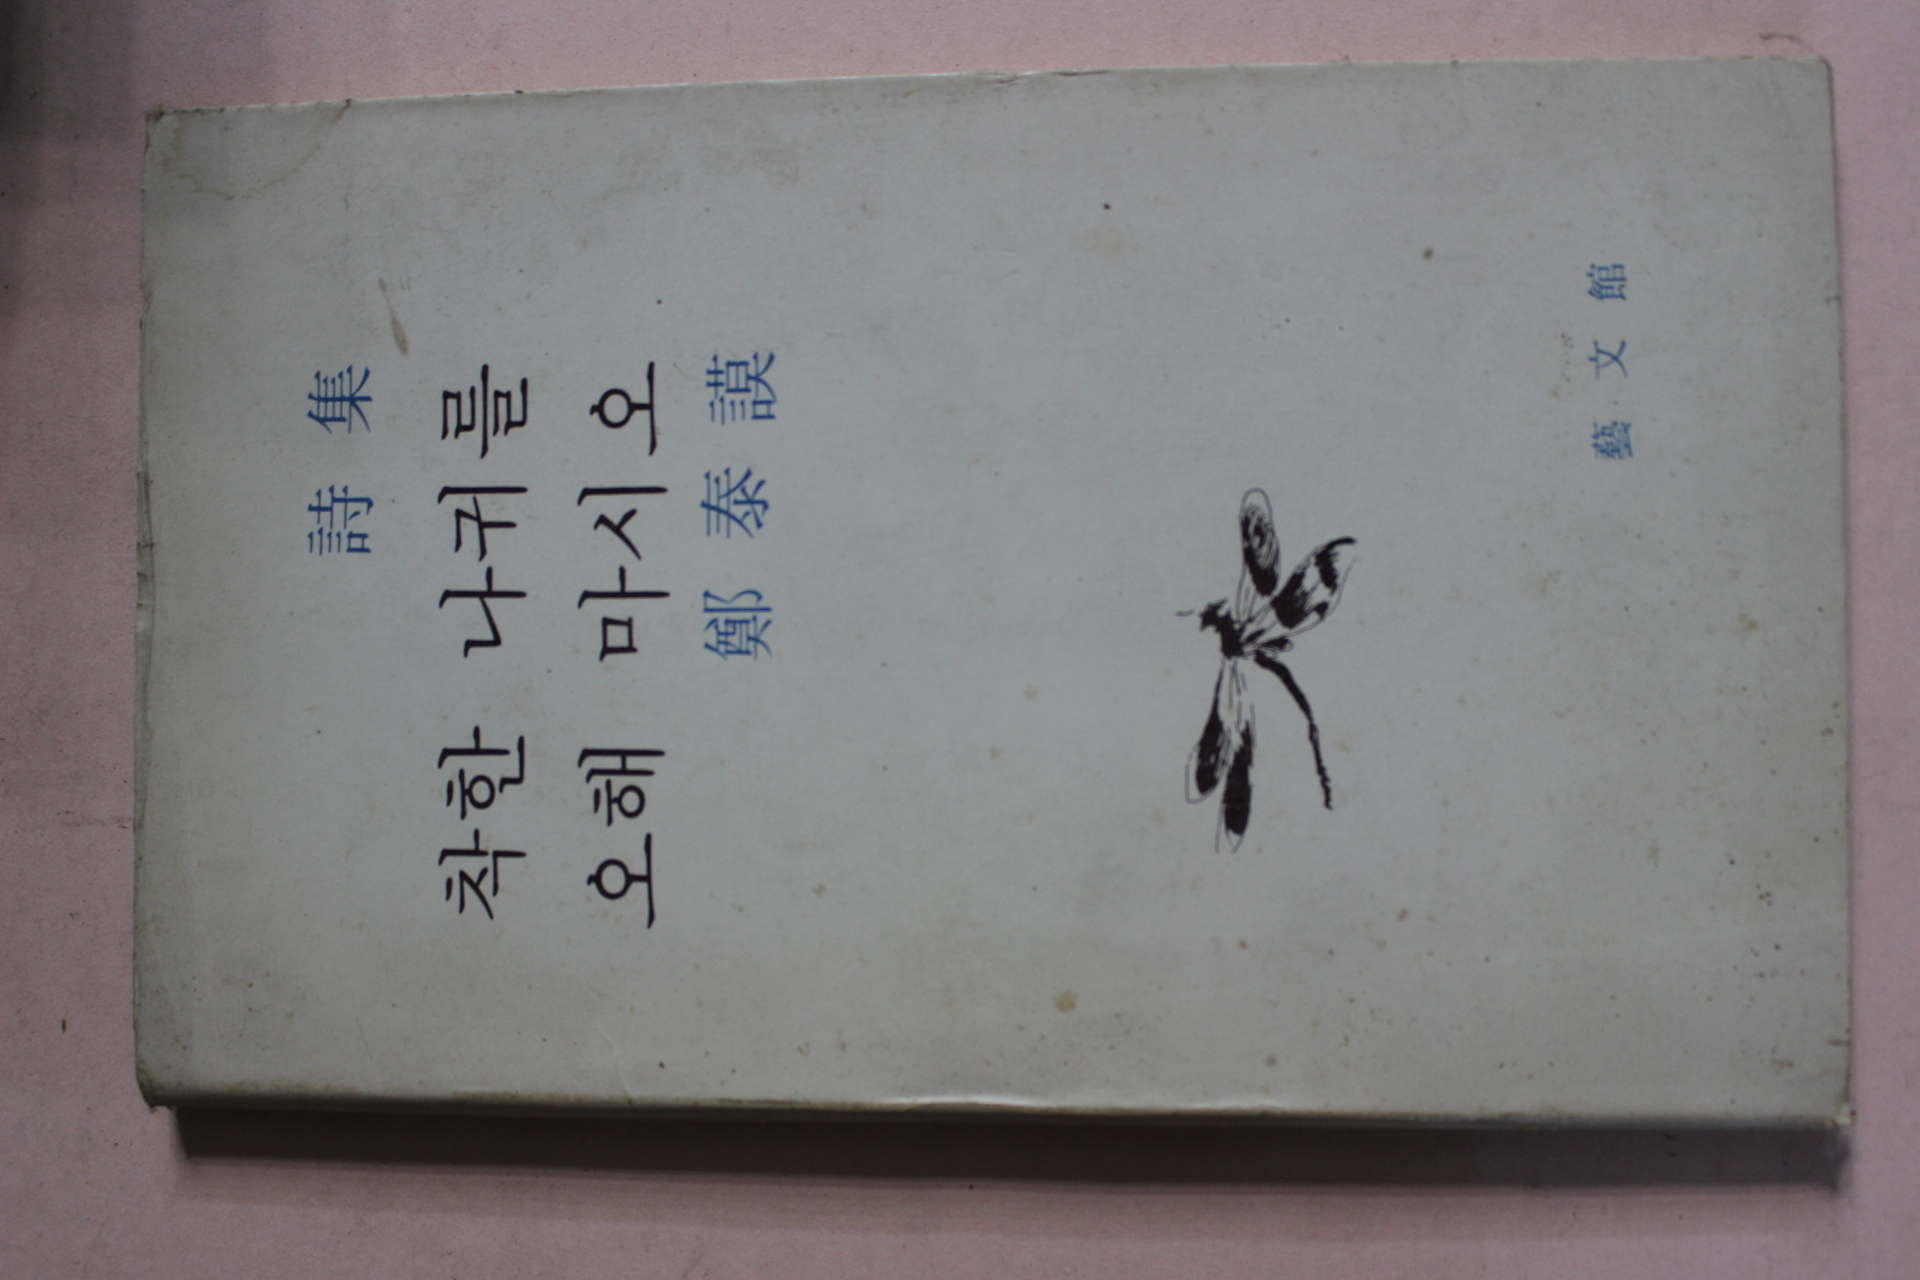 詩集
착한 나귀를
오해 마시오
鄭泰謨
藝文館